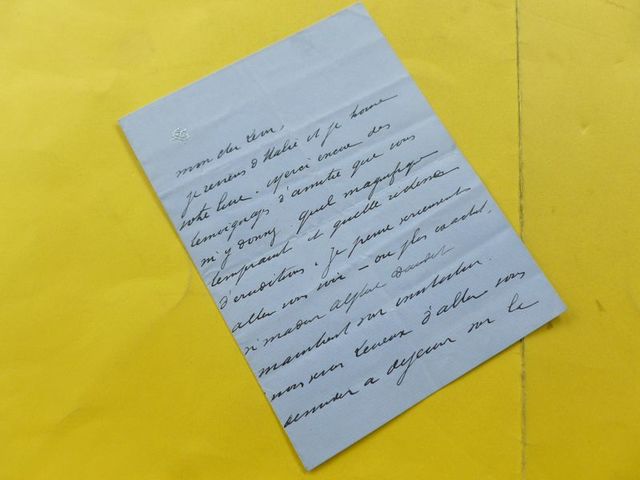 mon cher Léon,
je reviens d'Italie et je trouve
votre livre. Merci encore des
temoignages d'amitié que vous
m'y donnez. quel magnifique
temprament et quelle richesse
d'erudition. Je pense
aller vous voir — ou plus exactet.
si madame Alphse Daudet
maintient son invitation.
nous serons heureux d'aller vous
demander a dejeuner sur la